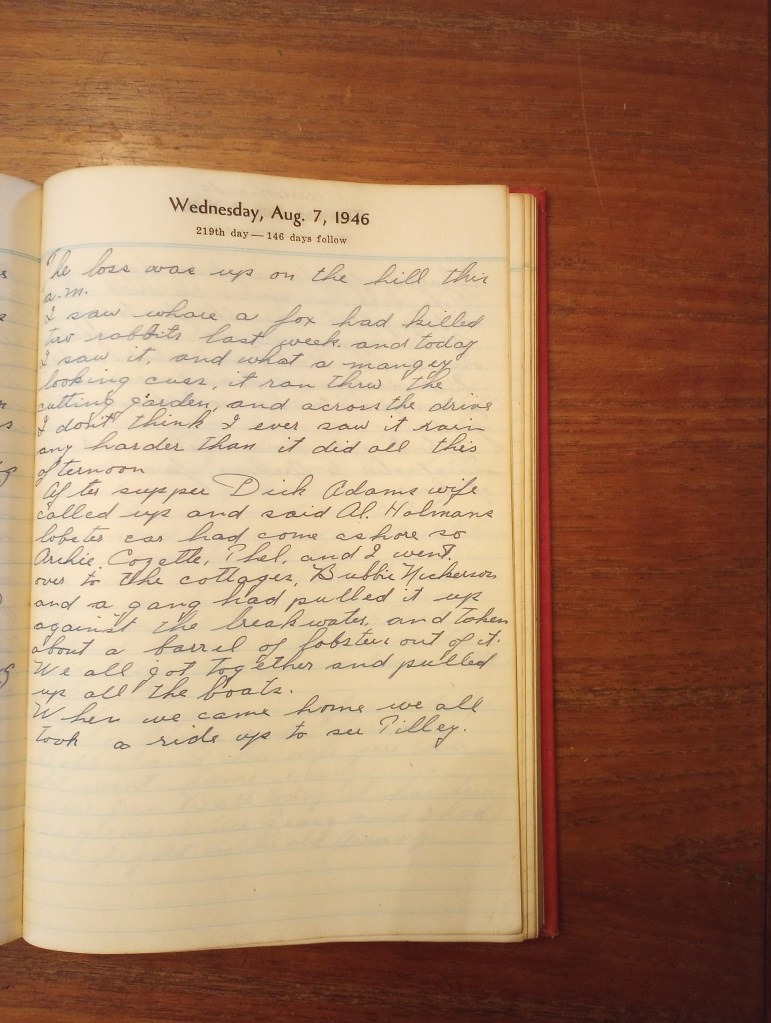 Wednesday, Aug. 7, 1946
219th day — 146 days follow
The boss was up on the hill this
a.m.
I saw whare a fox had killed
two rabbits last week. and today
I saw it, and what a mangey
looking cuss, it ran threw the
cutting garden, and across the drive
I don't think I ever saw it rain
any harder than it did all this
afternoon
After supper Dick Adams wife
called up and said Al. Holmans
lobster car had come ashore so
Archie, Cozette, Phel, and I went
over to the cottages, Bubbie Nickerson
and a gang had pulled it up
against the breakwater, and taken
about a barrel of lobsters out of it.
We all got together and pulled
up all the boats.
When we came home we all
took a ride up to see Tilley.